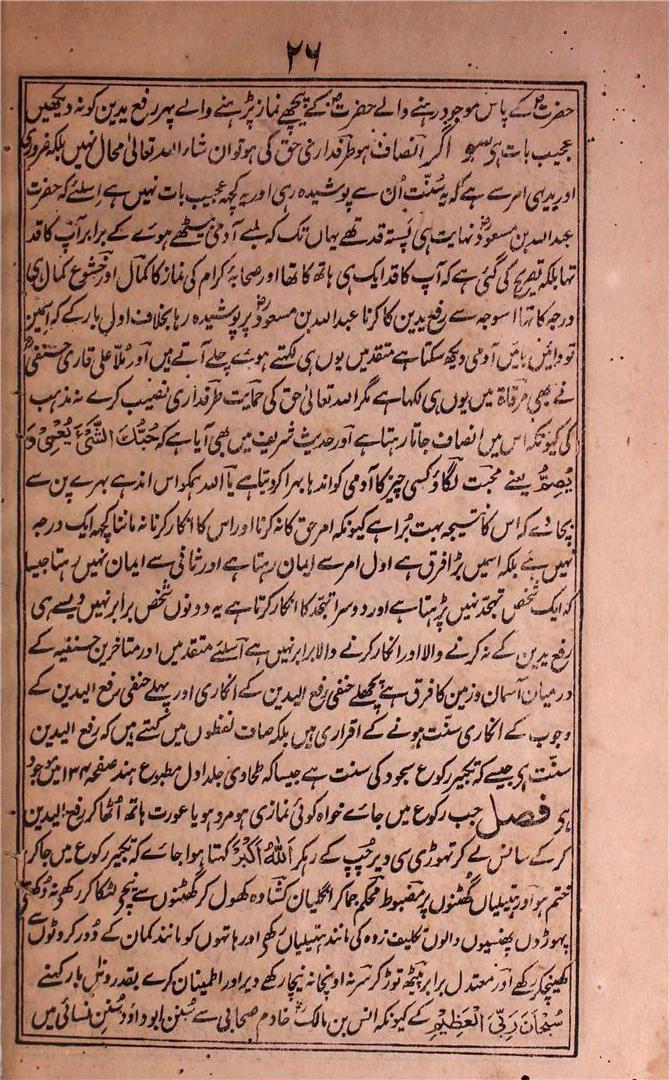 ۲۶
حضرتؐ کے پاس موجود رہنے والے حضرتؐ کے پیچھے نماز پڑہنے والے پہر رفع یدین کو نہ دیکھیں
عجیب بات ہی سو اگر انصاف ہو طرفداری حق کی ہو تو ان شاء اللہ تعالیٰ محال نہیں بلکہ ضروری
اور بدیہی امر سے ہے کہ یہ سنت اُن سے پوشیدہ رہی اور یہ کچھ عجیب بات نہیں ہے اسلئے کہ حضرت
عبداللہ بن مسعودؓ نہایت ہی پستہ قد تھے یہاں تک کہ لمبے آدمی بیٹھے ہوئے کے برابر آپ کا قد
تہا بلکہ تصریح کی گئی ہے کہ آپ کا قد ایک ہی ہاتھ کا تھا اور صحابہ کرام کی نماز کا کمال اور خشوع کمال ہی
درجہ کا تہا اسوجہ سے رفع یدین کا کرنا عبداللہ بن مسعودؓ پر پوشیدہ رہا بخلاف اول بار کے کہ اسمیں
تو دائیں بائیں آدمی دیکھ سکتا ہے متقدمین یوں ہی لکہتے ہوئے چلے آتے ہیں اور ملا علی قاری حنفی
نے بھی مرقاۃ میں یوں ہی لکہا ہے مگر اللہ تعالیٰ حق کی حمایت طرفداری نصیب کرے نہ مذہب
کی کیونکہ اس میں انصاف جاتا رہتا ہے اور حدیث شریف میں بھی آیا ہے کہ حُبُّكَ الشَّيْءَ يُعْمِيْ وَ
يُصِمُّ یعنے محبت لگاؤ کسی چیز کا آدمی کو اندہا بہرا کر دیتا ہے یا اللہ ہمکو اس اندہے بہرے پن سے
بچا دے کہ اس کا نتیجہ بہت بُرا ہے کیونکہ امر حق کا نہ کرنا اور اس کا انکار کرنا نہ ماننا کچھ ایک درجہ
نہیں ہے بلکہ اسمیں بڑا فرق ہے اول امر سے ایمان رہتا ہے اور ثانی سے ایمان نہیں رہتا جیسا
کہ ایک شخص تہجد نہیں پڑہتا ہے اور دوسرا تہجد کا انکار کرتا ہے یہ دونوں شخص برابر نہیں ویسے ہی
رفع یدین کے نہ کرنے والا اور انکار کرنے والا برابر نہیں ہے اسلئے متقدمین اور متاخرین حنفیہ کے
درمیان آسمان و زمین کا فرق ہے پچھلے حنفی رفع الیدین کے انکاری اور پہلے حنفی رفع الیدین کے
وجوب کے انکاری سنت ہونے کے اقراری ہیں بلکہ صاف لفظوں میں کہتے ہیں کہ رفع الیدین
سنت ہی جیسے کہ تکبیر رکوع سجود کی سنت ہے جیسا کہ طحاوی جلد اول مطبوع ہند صفحہ ۱۳۴ میں موجود
ہی فصل جب رکوع میں جائے خواہ کوئی نمازی ہو مرد ہو یا عورت ہاتھ اُٹھا کر رفع الیدین
کر کے سانس لے کر تہوڑی سی دیر چپ کے رہکر اَللّٰهُ اَكْبَرُ کہتا ہوا جائے کہ تکبیر رکوع میں جا کر
ختم ہو اور ہتیلیاں گھٹنوں پر مضبوط محکم جما کر انگلیاں کشادہ کھول کر گھٹنوں سے نیچی لٹکا کر رکھی نہ
پھوڑوں پھنسیوں والوں تکلیف زدہ کی مانند ہتیلیاں رکھی اور ہاتہوں کو مانند کمان کے دور کروٹوں سے
کھینچکر رکھے اور معتدل برابر پیٹھ توڑ کر سر نہ اونچا نہ نیچا رکھے دیر اور اطمینان کرے بقدر دش بار کہنے
سُبْحَانَ رَبِّيَ الْعَظِيْمِ کے کیونکہ انس بن مالکؓ خادم صحابی سے سنن ابو داؤد سنن نسائی میں